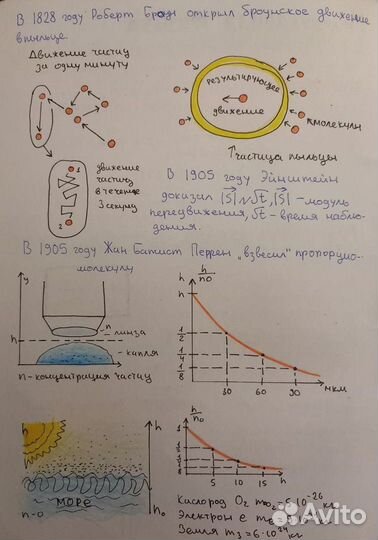 В 1828 году Роберт Броун открыл броунское движение
в пыльце.
Движение частиц
за одну минуту
результирующее
движение
молекулы
частица пыльцы
1
2
движение
частиц
в течение
3 секунд
В 1905 году Эйнштейн
доказал |S|~√t, |S| - модуль
передвижения, √t - время наблю-
дения.
В 1905 году Жан Батист Перрен „взвесил" пропорцио-
молекулу
y
h
n
линза
капля
n - концентрация частиц
h
n/n0
1/2
1/4
1/8
30
60
90
мкм
h
h0
море
n-0
h/n0
5
10
15
h
Кислород O₂ mO₂=5·10⁻²⁶ кг
Электрон e
Земля m₃=6·10²⁴ кг
Avito